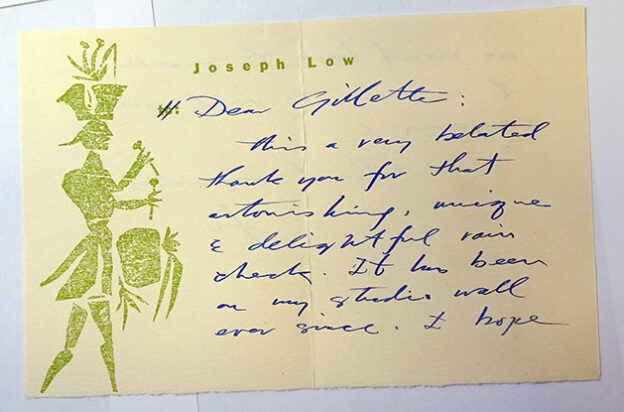 Joseph Low
to:
Dear Gillette:
this a very belated
thank you for that
astonishing, unique
& delightful rain
check. It has been
on my studio wall
ever since. I hope